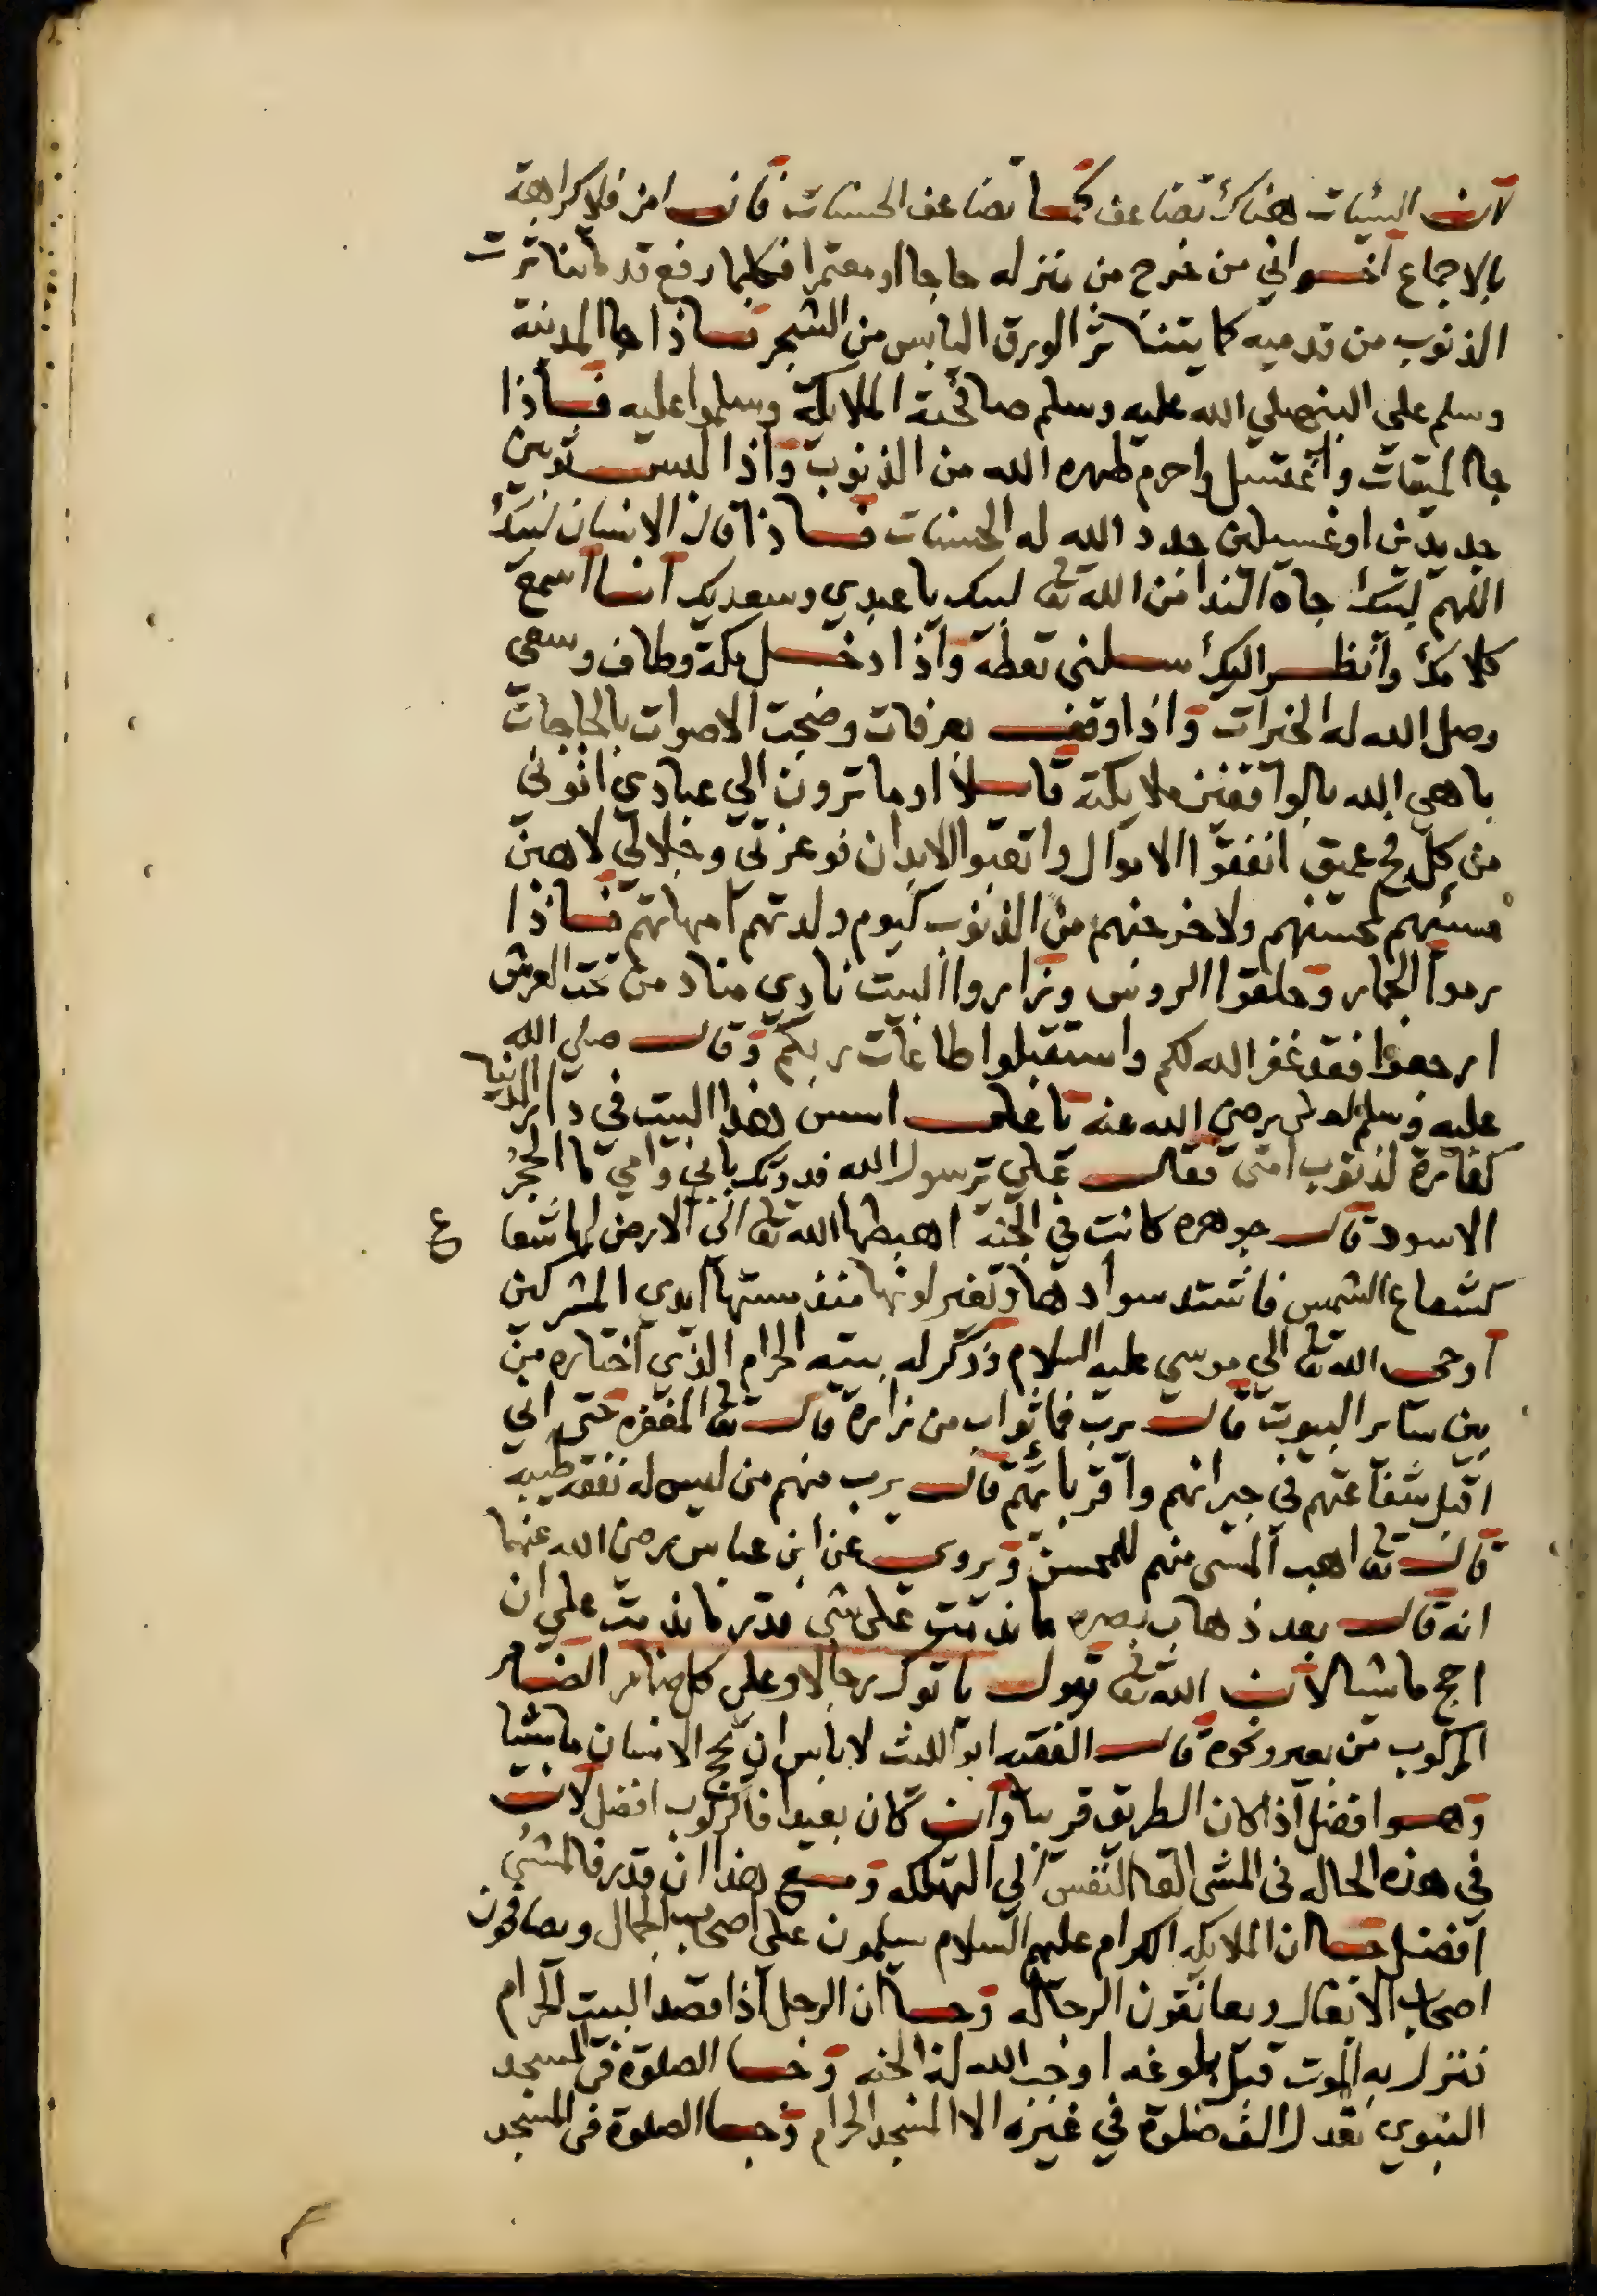 لان السئيات هناك تضاعف كما تضاعف الحسنات فان امن فلا كراهة
بالاجماع اخواني من خرج من منزله حاجا او معتمرا فكلما رفع قدما تناثرت
الذنوب من قدميه كما يتناثر الورق اليابس من الشجر فاذا جا المدينة
وسلم على النبي صلي الله عليه وسلم صافحته الملايكة وسلموا عليه فاذا
جا الميقات واغتسل واحرم طهره الله من الذنوب واذا لبس ثوبين
جديدين او غسيلين جدد الله له الحسنات فاذا قال الانسان لبيك
اللهم لبيك جاه الندا من الله تعا لبيك يا عبدي وسعديك انا اسمع
كلامك وانظر اليك سلني تعطه واذا دخل مكة وطاف وسعي
وصل الله له الخيرات واذا وقف بعرفات وضجت الاصوات بالحاجات
باهي الله بالواقفين ملايكته قايلا اوما ترون الي عبادي اتوني
من كل فج عميق انفقوا الاموال واتعبوا الابدان فوعزتي وجلالي لاهبن
مسئيهم لمحسنهم ولاخرجنهم من الذنوب كيوم ولدتهم امهاتهم فاذا
رموا الجمار وحلقوا الروس وزاروا البيت نادي مناد من تحت العرش
ارجعوا فقد غفر الله لكم واستقبلوا طاعات ربكم وقال صلي الله
عليه وسلم لعلى رضي الله عنه يا على اسس هذا البيت في دار الدنيا
كفارة لذنوب امتى فقال على يرسول الله فديتك بابي وامي ما الحجر
الاسود قال جوهره كانت في الجنة اهبطها الله تعا الى الارض لها شعا ع
كشعاع الشمس فاشتد سوادها وتغير لونها منذ مستها ايدي المشركين
اوحى الله تعا الي موسي عليه السلام وذكر له بيته الحرام الذي اختاره من
بين ساير البيوت قال يرب فما ثواب من زاره قال تعا المغفره حتى اني
اقبل شفاعتهم في جيرانهم واقربائهم قال يرب منهم من ليس له نفقه طيبه
قال تعا اهب المسى منهم للمحسن ويروى عن ابن عباس رضي الله عنهما
انه قال بعد ذهاب بصره ما ندمت على شى قدر ما ندمت علي ان
احج ماشيا لان الله تعا يقول ياتوك رجالا وعلى كل ضامر الضامر
المركوب من بعير ونحوه قال الفقيه ابو الليث لا باس ان يحج الانسان ماشيا
وهو افضل اذا كان الطريق قريبا وان كان بعيدا فالركوب افضل لان
في هذه الحاله في المشى القا النفس الي التهلكه ومع هذا ان قدر فالمشي
افضل جا ان الملايكه الكرام عليهم السلام يسلمون على اصحاب الجمال ويصافحون
اصحاب الاثقال ويعانقون الرجاله وجا ان الرجل اذا قصد البيت الحرام
فنزل به الموت قبل بلوغه اوجب الله له الجنه وجا الصلوة في المسجد
النبوي تعدل الف صلوة في غيره الا المسجد الحرام وجا الصلوة في المسجد